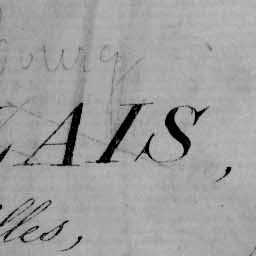 bourg
LAIS,
lles,